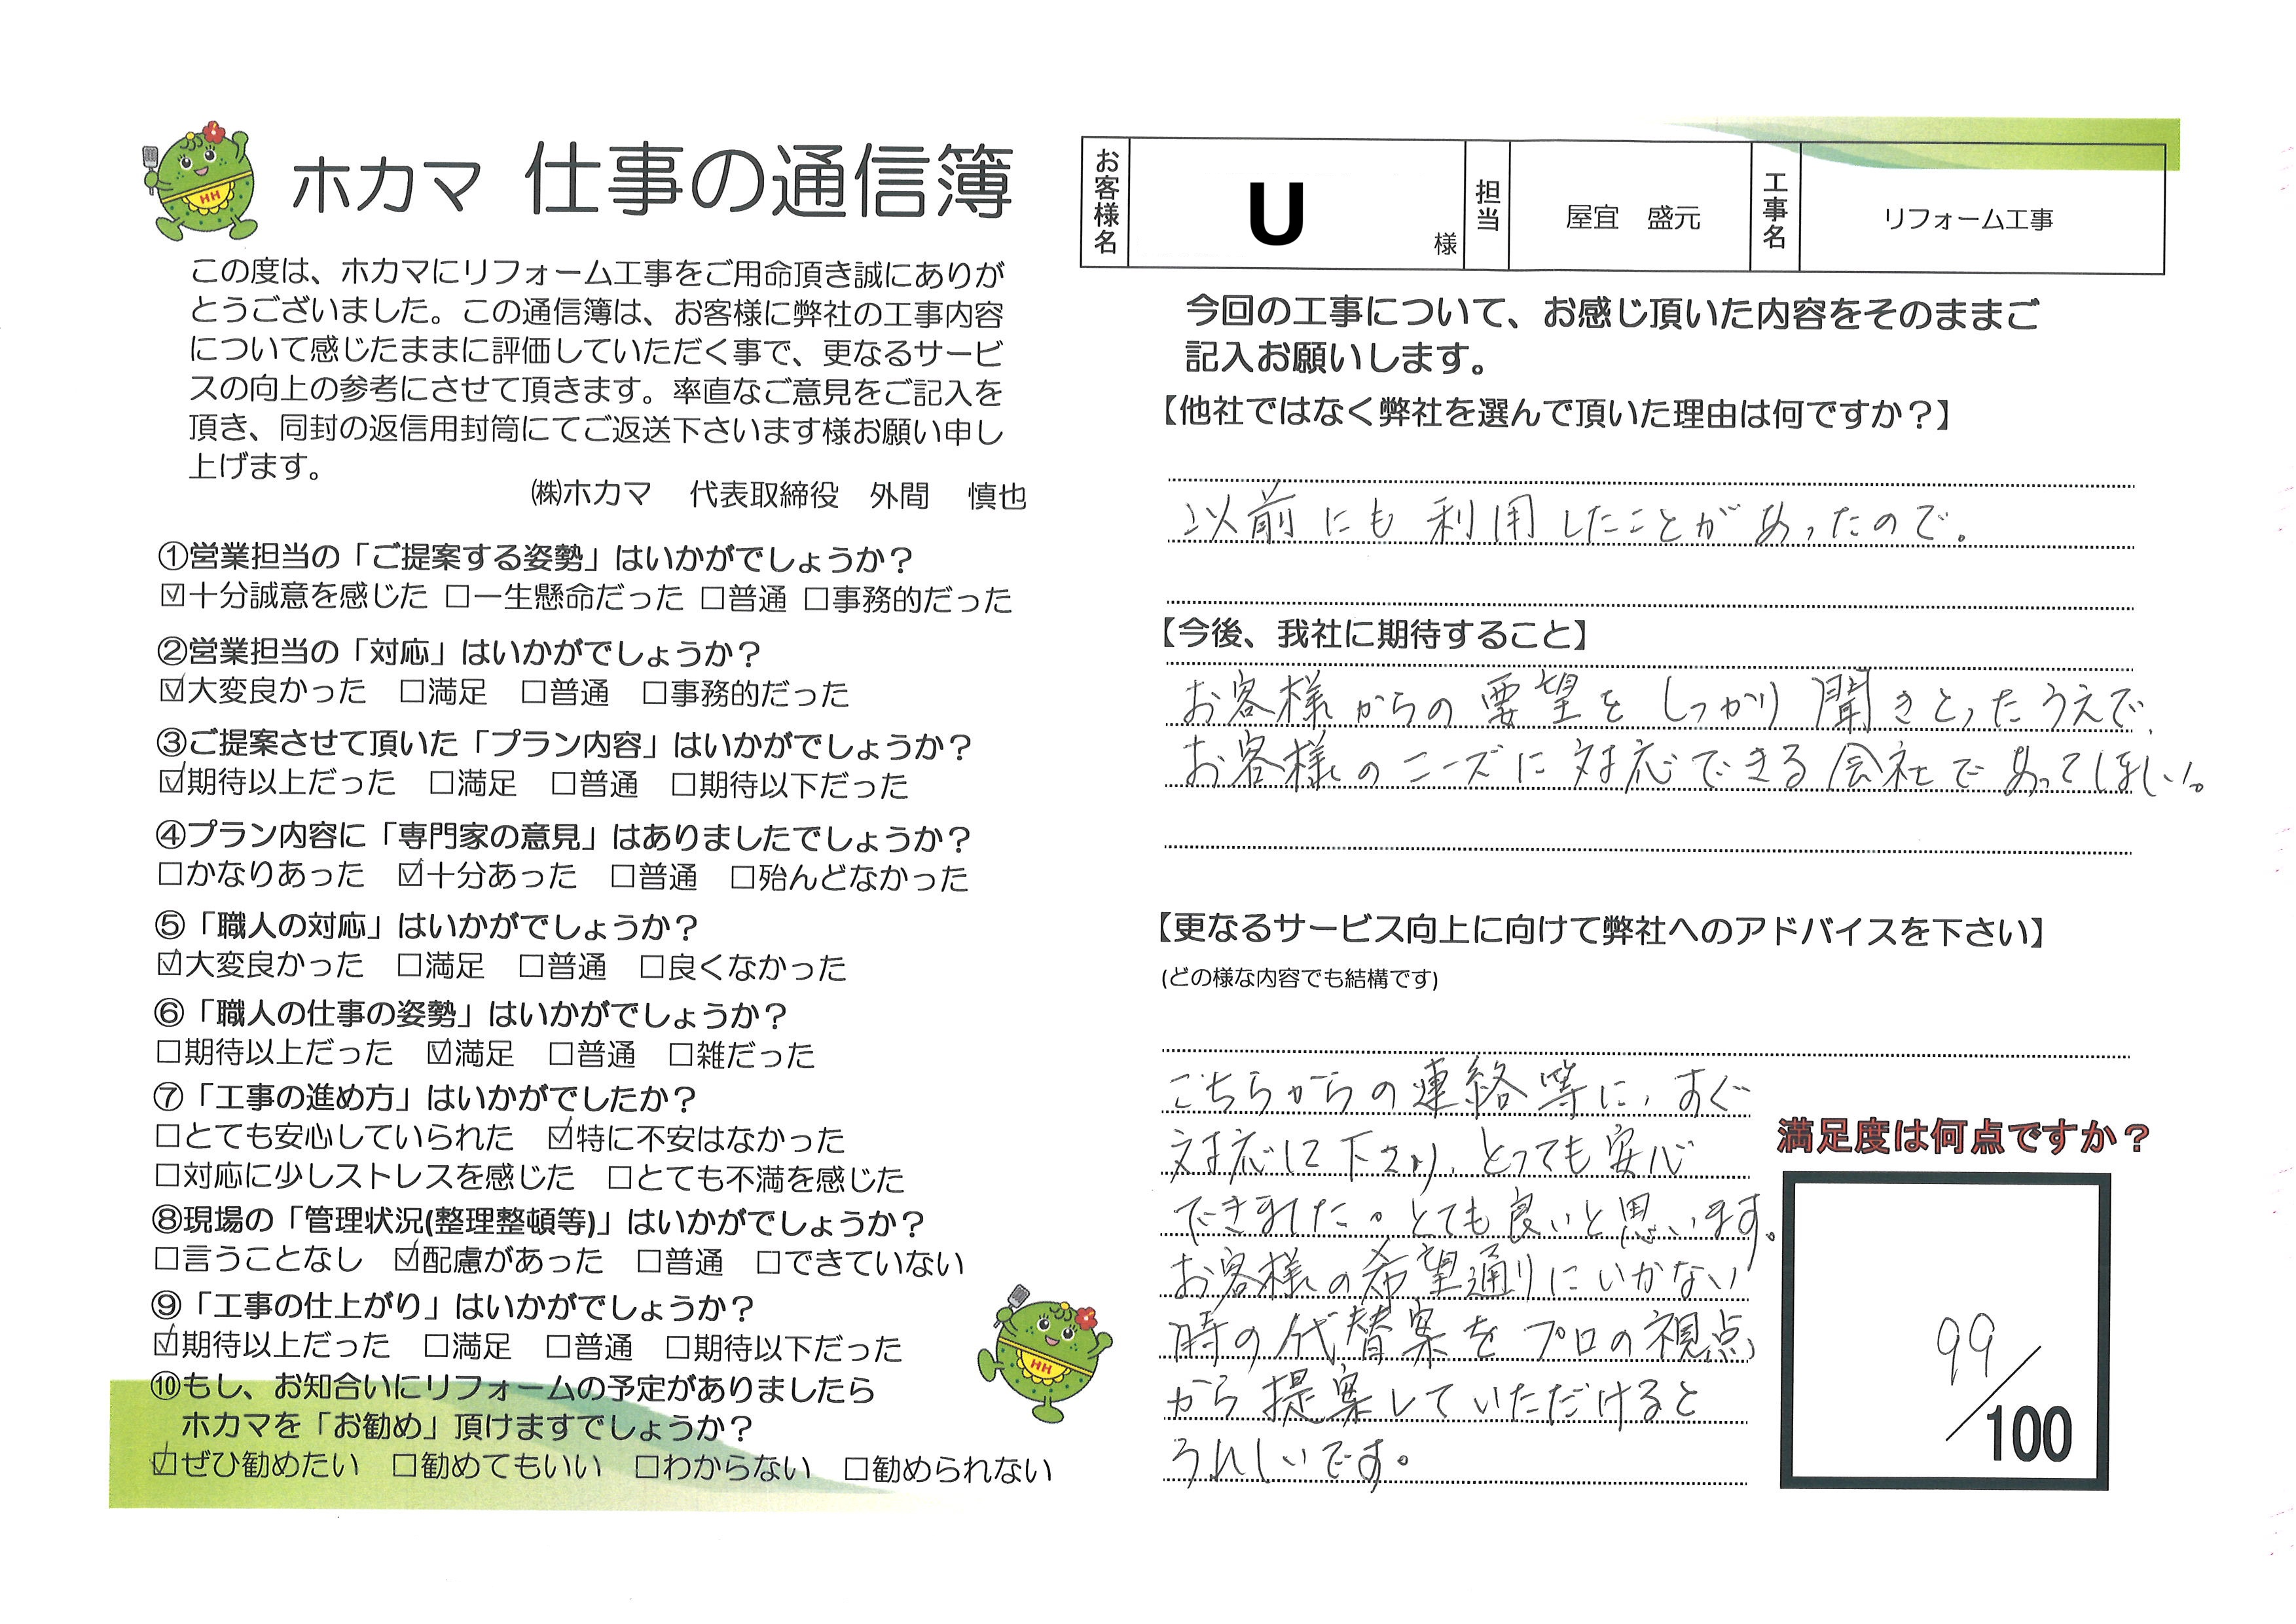 ホカマ 仕事の通信簿
この度は、ホカマにリフォーム工事をご用命頂き誠にありが
とうございました。この通信簿は、お客様に弊社の工事内容
について感じたままに評価していただく事で、更なるサービ
スの向上の参考にさせて頂きます。率直なご意見をご記入を
頂き、同封の返信用封筒にてご返送下さいます様お願い申し
上げます。
㈱ホカマ 代表取締役 外間 慎也
①営業担当の「ご提案する姿勢」はいかがでしょうか？
☑十分誠意を感じた □一生懸命だった □普通 □事務的だった
②営業担当の「対応」はいかがでしょうか？
☑大変良かった □満足 □普通 □事務的だった
③ご提案させて頂いた「プラン内容」はいかがでしょうか？
☑期待以上だった □満足 □普通 □期待以下だった
④プラン内容に「専門家の意見」はありましたでしょうか？
□かなりあった ☑十分あった □普通 □殆んどなかった
⑤「職人の対応」はいかがでしょうか？
☑大変良かった □満足 □普通 □良くなかった
⑥「職人の仕事の姿勢」はいかがでしょうか？
□期待以上だった ☑満足 □普通 □雑だった
⑦「工事の進め方」はいかがでしたか？
□とても安心していられた ☑特に不安はなかった
□対応に少しストレスを感じた □とても不満を感じた
⑧現場の「管理状況(整理整頓等)」はいかがでしょうか？
□言うことなし ☑配慮があった □普通 □できていない
⑨「工事の仕上がり」はいかがでしょうか？
☑期待以上だった □満足 □普通 □期待以下だった
⑩もし、お知合いにリフォームの予定がありましたら
ホカマを「お勧め」頂けますでしょうか？
☑ぜひ勧めたい □勧めてもいい □わからない □勧められない
お客様名 U 様 担当 屋宜 盛元 工事名 リフォーム工事
今回の工事について、お感じ頂いた内容をそのままご
記入お願いします。
【他社ではなく弊社を選んで頂いた理由は何ですか？】
以前にも利用したことがあったので。
【今後、我社に期待すること】
お客様からの要望をしっかり聞きとったうえで、
お客様のニーズに対応できる会社であってほしい。
【更なるサービス向上に向けて弊社へのアドバイスを下さい】
(どの様な内容でも結構です)
こちらからの連絡等に、すぐ
対応して下さり、とっても安心
できました。とても良いと思います。
お客様の希望通りにいかない
時の代替案をプロの視点
から提案していただけると
うれしいです。
満足度は何点ですか？
99/100
HH
HH